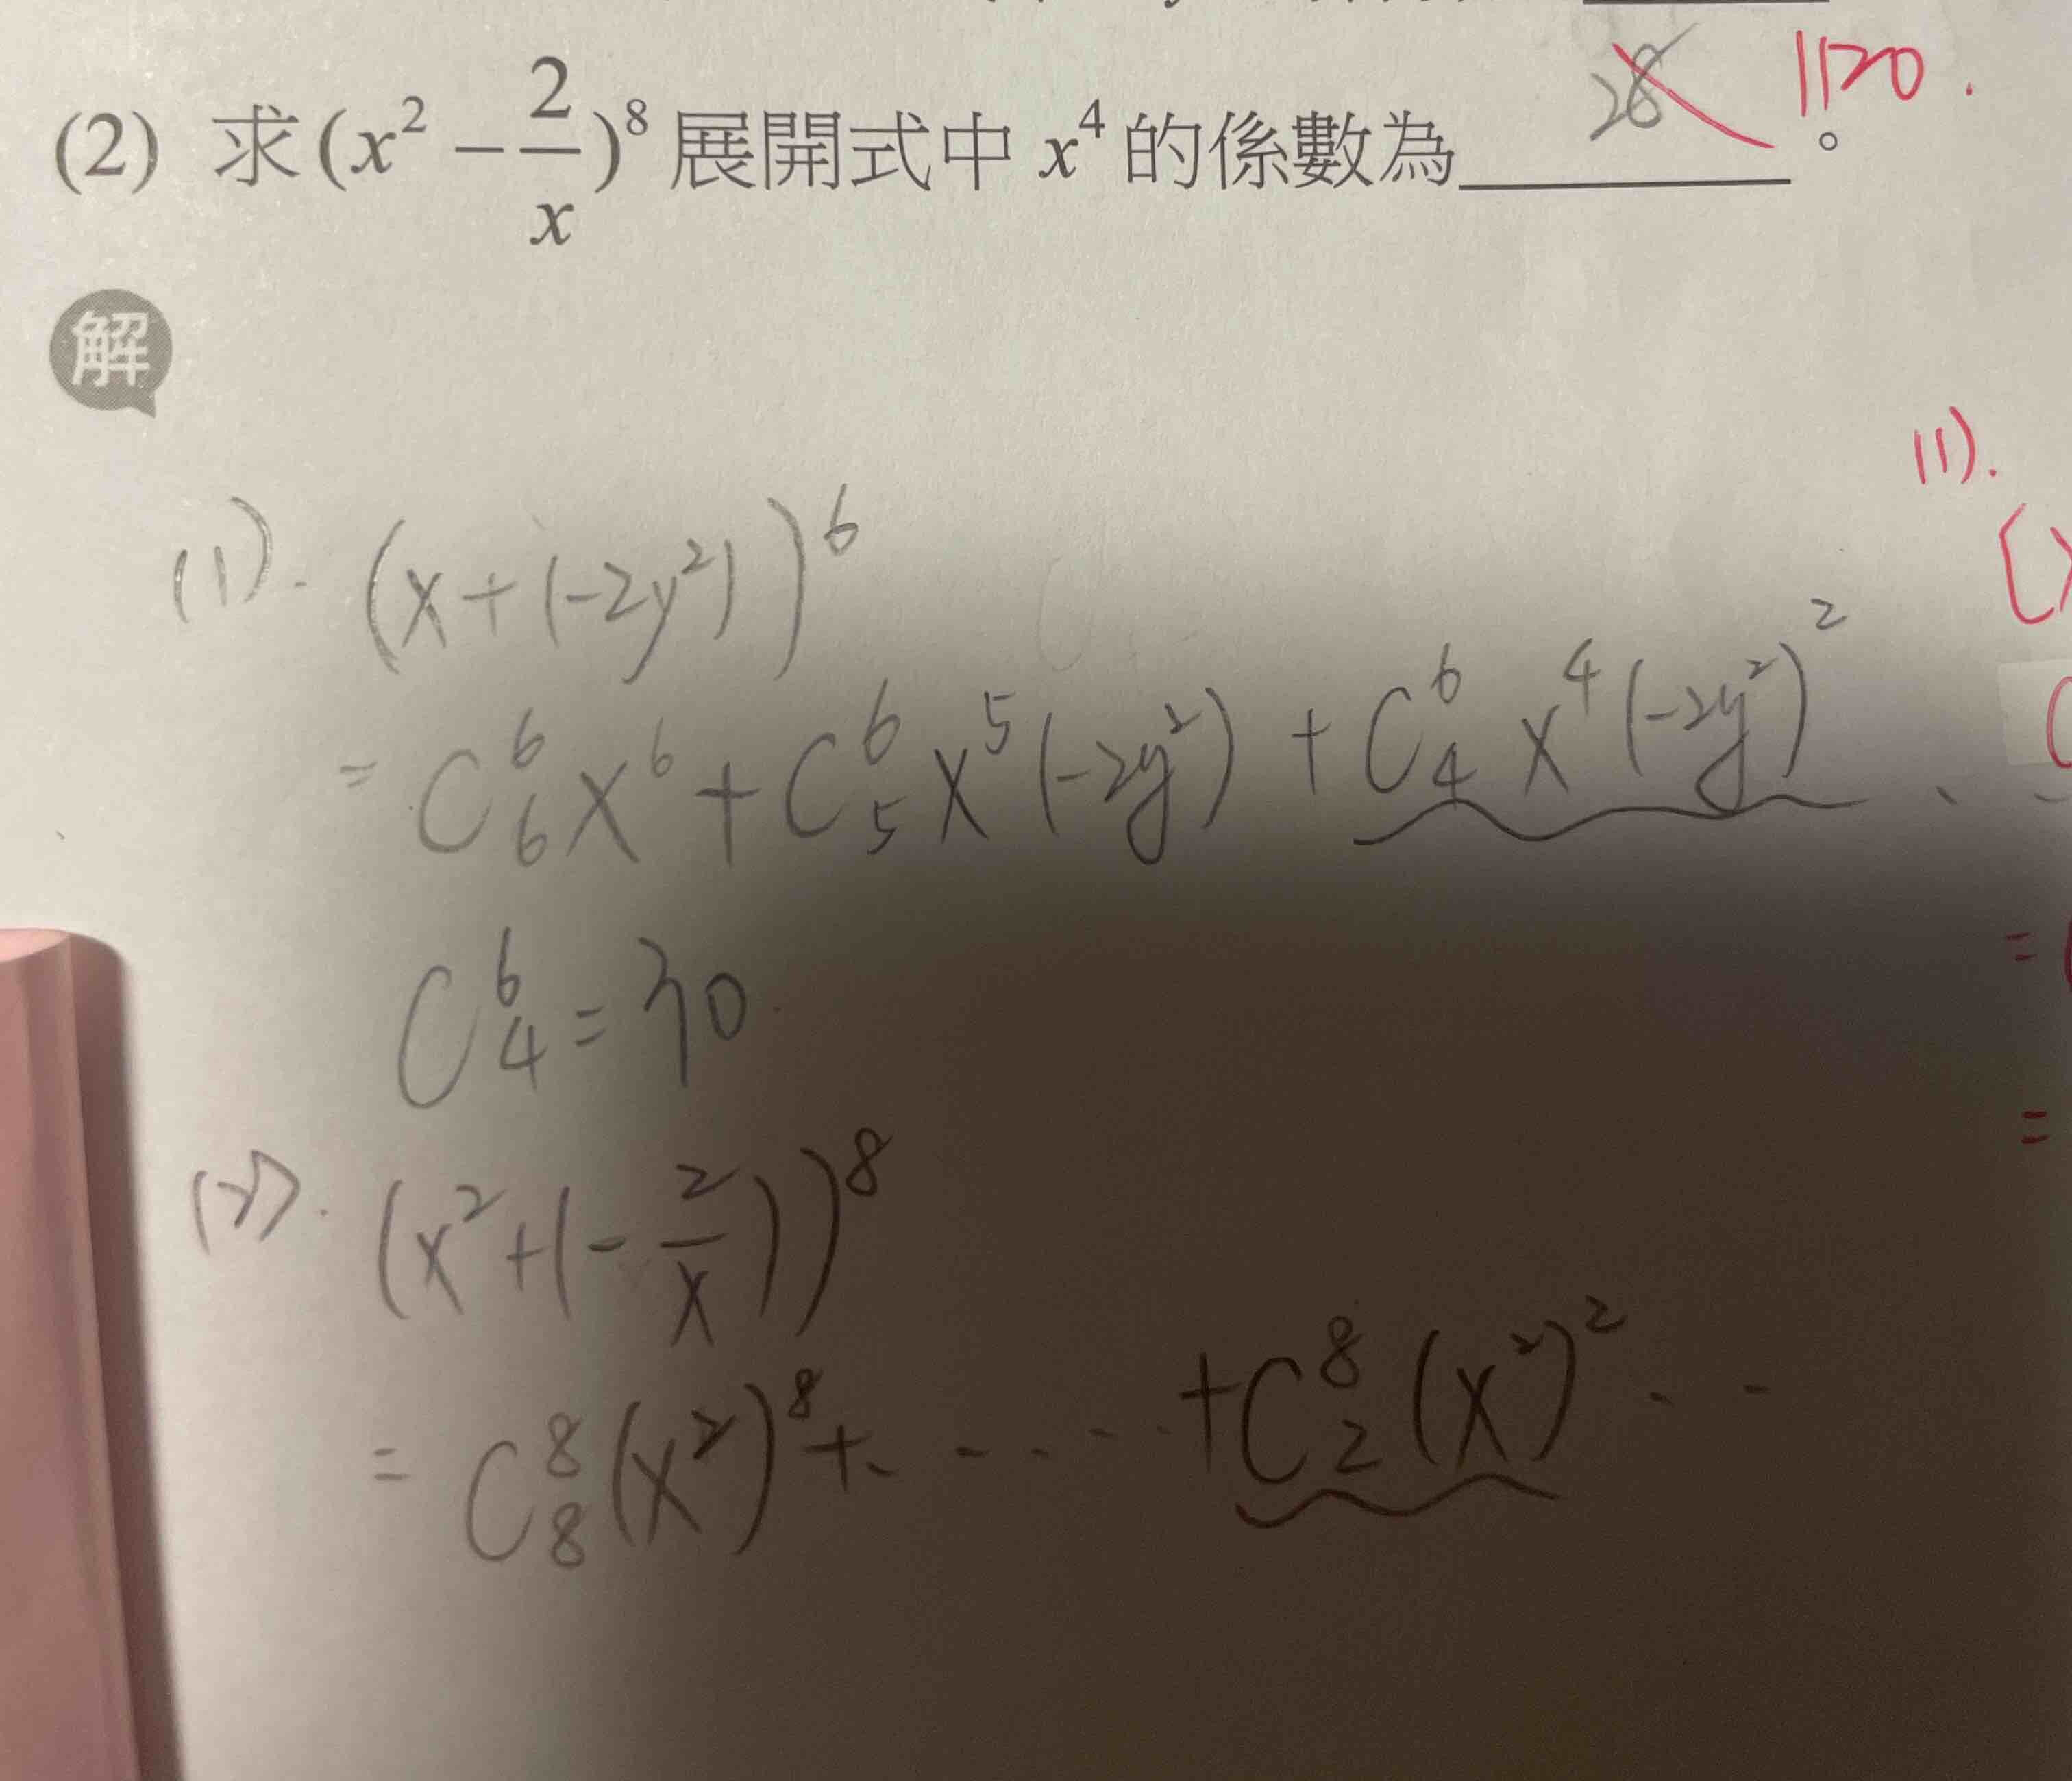 28 1120.
(2) 求(x² - 2/x)⁸展開式中 x⁴ 的係數為______。
解
(1).
(1). (x+(-2y²))⁶
= C⁶₆x⁶ + C⁶₅x⁵(-2y²) + C⁶₄x⁴(-2y²)²
C⁶₄ = 30
(2). (x²+(-2/x))⁸
= C⁸₈(x²)⁸+ ..... +C⁸₂(x²)² ..